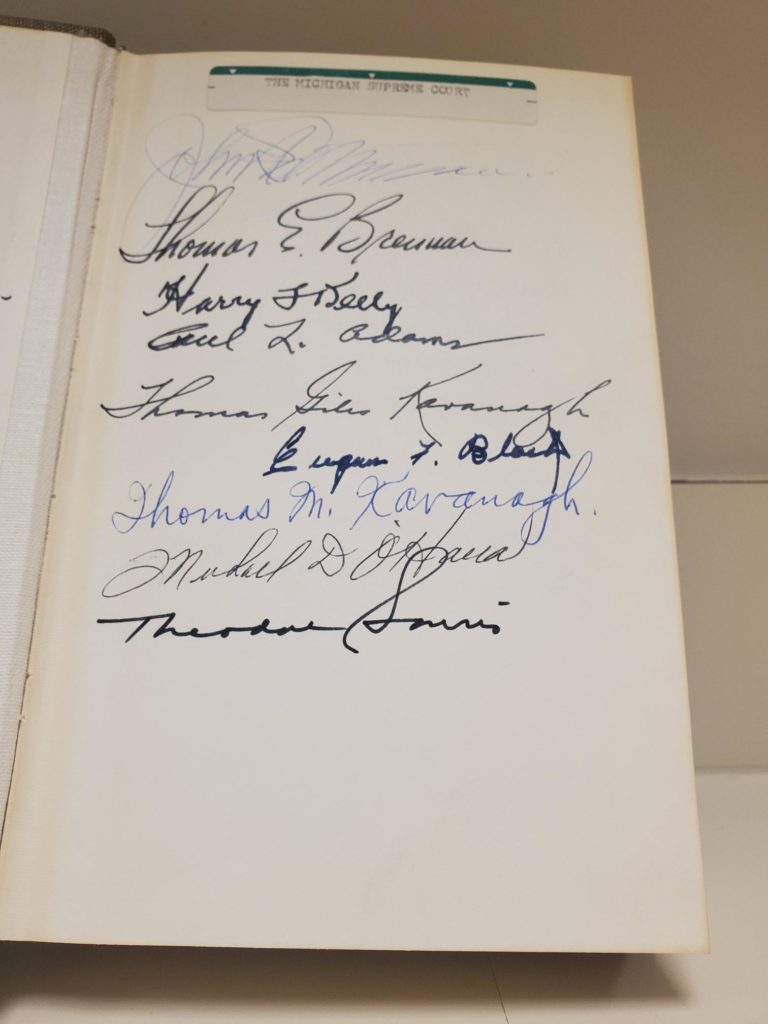 THE MICHIGAN SUPREME COURT
John D.
Thomas E. Brennan
Harry F Kelly
Paul L. Adams
Thomas Giles Kavanagh
Eugene F. Black
Thomas M. Kavanagh.
Michael D O'Hara
Theodore Souris